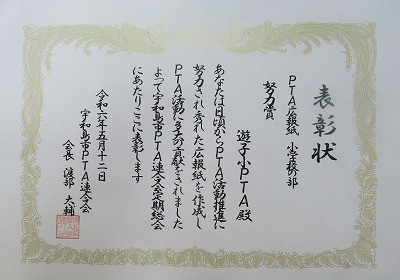 表彰状
PTA広報紙 小学校の部
努力賞
遊子小PTA殿
あなたは日頃からPTA活動推進に
努力され秀れた広報紙を作成し
PTA活動に多大の貢献をされました
よって宇和島市PTA連合会定期総会
にあたりここに表彰します
令和六年五月十二日
宇和島市PTA連合会
会長 渡部 大輔